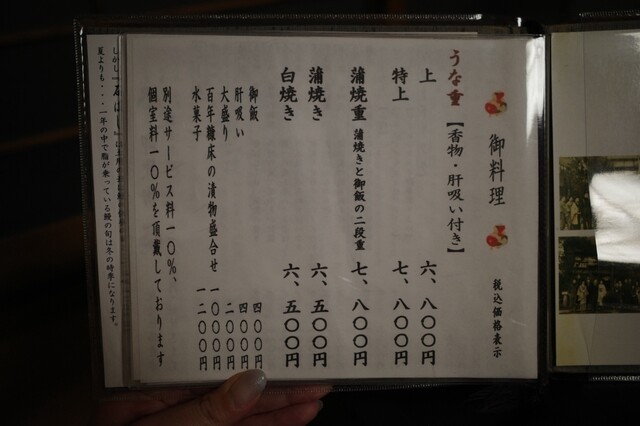 御料理
税込価格表示
うな重【香物・肝吸い付き】
上 六、八〇〇円
特上 七、八〇〇円
蒲焼重 蒲焼きと御飯の二段重 七、八〇〇円
蒲焼き 六、五〇〇円
白焼き 六、五〇〇円
御飯 四〇〇円
肝吸い 四〇〇円
大盛り 二〇〇円
百年糠床の漬物盛合せ 一〇〇〇円
水菓子 一二〇〇円
別途サービス料一〇%、
個室料一〇%を頂戴しております
しかし「石ばし」は
夏よりも・・・一年の中で脂が乗っている鰻の旬は冬の時季になります。